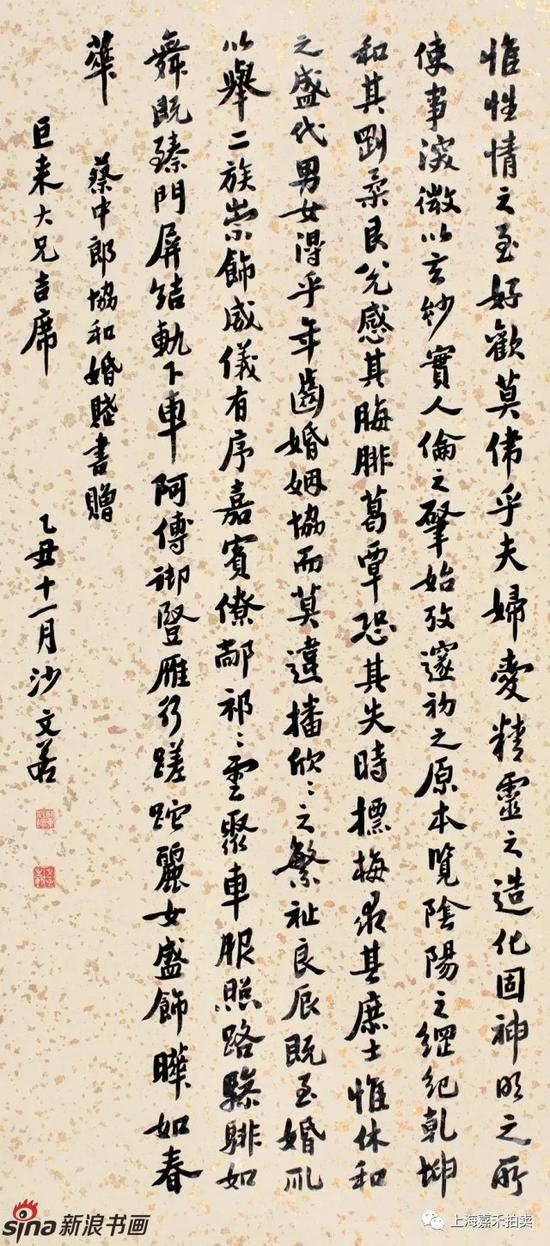 惟性情之至好歡莫偉乎夫婦愛精靈之造化固神明之所
使事深微以玄妙實人倫之肇始攷邃初之原本覽陰陽之綱紀乾坤
和其剛柔艮兌感其脢腓葛覃恐其失時摽梅求其庶士惟休和
之盛代男女得乎年齒婚姻協而莫違播欣〻之繁祉良辰既至婚礼
以舉二族崇飾威儀有序嘉賓僚祁〻雲聚車服照路驂騑如
舞既臻門屏結軌下車阿傅御豎雁行蹉跎麗女盛飾曄如春
華
蔡中郎協和婚賦書贈
巨來大兄吉席 乙丑十一月沙文若
sina新浪书画
上海嘉禾拍卖